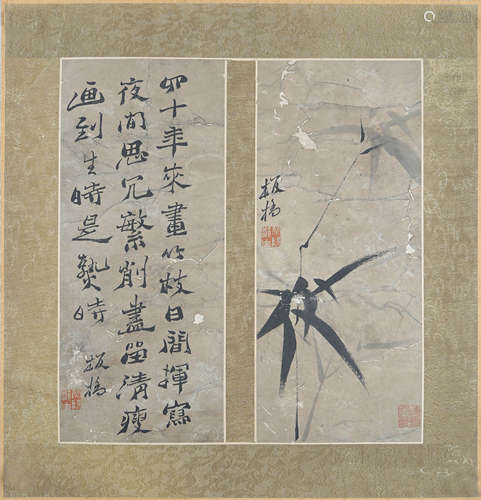 四十年來畫竹枝日間揮寫
夜間思冗繁削盡留清瘦
画到生時是熟時 板橋
板橋